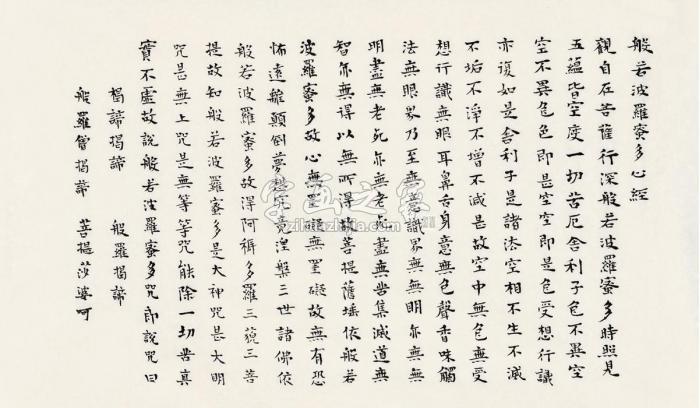 般若波羅蜜多心經
觀自在菩薩行深般若波羅蜜多時照見
五蘊皆空度一切苦厄舍利子色不異空
空不異色色即是空空即是色受想行識
亦復如是舍利子是諸法空相不生不滅
不垢不淨不增不減是故空中無色無受
想行識無眼耳鼻舌身意無色聲香味觸
法無眼界乃至無意識界無無明亦無無
明盡無老死亦無老死盡無苦集滅道無
智亦無得以無所得故菩提薩埵依般若
波羅蜜多故心無罣礙無罣礙故無有恐
怖遠離顛倒夢想究竟涅槃三世諸佛依
般若波羅蜜多故得阿耨多羅三藐三菩
提故知般若波羅蜜多是大神咒是大明
咒是無上咒是無等等咒能除一切苦真
實不虛故說般若波羅蜜多咒即說咒曰
揭諦揭諦 般羅揭諦
般羅僧揭諦 菩提莎婆呵
字画之家